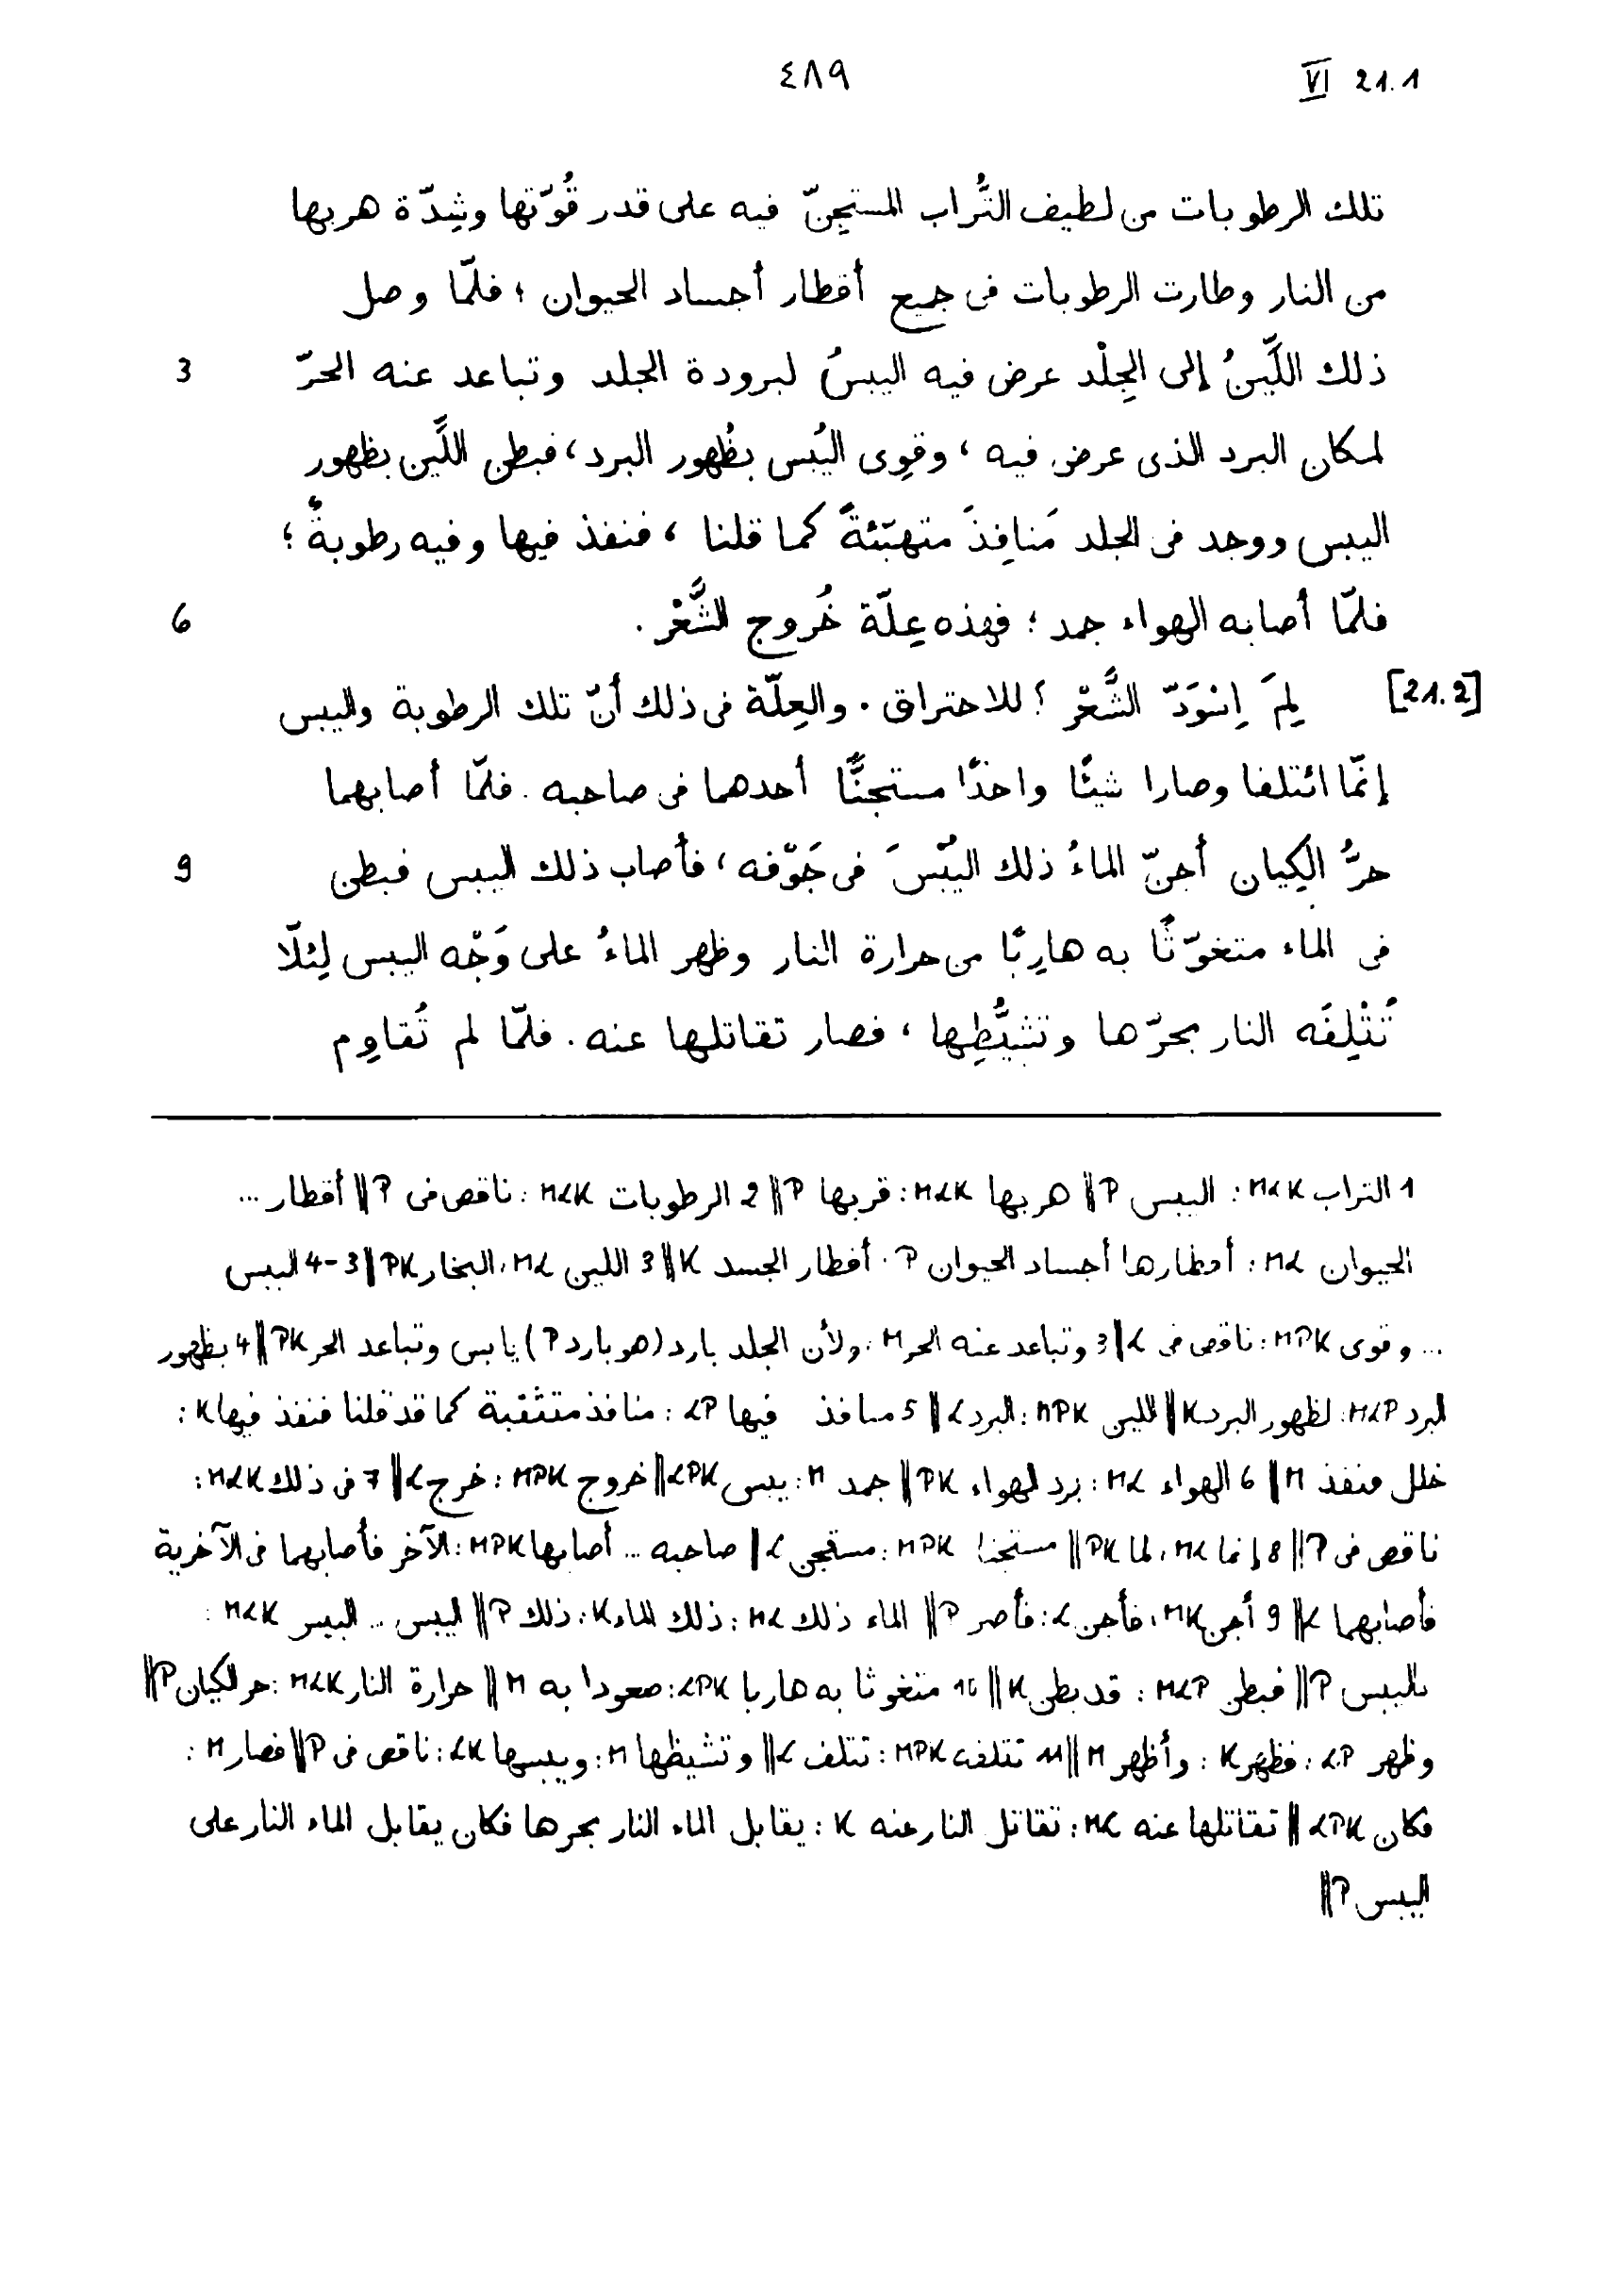 ٤٨٩
VI 21.1
تلك الرطوبات من لطيف التُّراب المستجِنّ فيه على قدر قُوّتها وشِدّة هربها
من النار وطارت الرطوبات فى جميع أقطار أجساد الحيوان ؛ فلمّا وصل
ذلك اللَّيِّنُ إلى الجِلْد عرض فيه اليبسُ لبرودة الجلد وتباعد عنه الحرّ 3
لمكان البرد الذى عرض فيه ، وقوِى اليُبس بظُهور البرد ، فبطن اللَّيِّن بظهور
اليبس ووجد فى الجلد مَنافِذَ متهيّئةً كما قلنا ، فنفذ فيها وفيه رطوبةٌ ؛
فلمّا أصابه الهواء جمد ؛ فهذه عِلّة خُروج الشَّعْر . 6
[21.2] لِمَ اِسْوَدّ الشَّعْر ؟ للاحتراق . والعِلّة فى ذلك أنّ تلك الرطوبة واليبس
إنّما ائتلفا وصارا شيئًا واحدًا مستجنًّا أحدهما فى صاحبه . فلمّا أصابهما
حرُّ الكِيان أجنّ الماءُ ذلك اليُبْسَ فى جَوْفه ، فأصاب ذلك اليبس فبطن 9
فى الماء متغوّثًا به هارِبًا من حرارة النار وظهر الماءُ على وَجْه اليبس لِئلّا
تُتْلِفَه النار بحرّها وتشيُّطِها ، فصار تقاتلها عنه . فلمّا لم تُقاوِم
1 التراب MLK : اليبس P || هربها MLK : قربها P || 2 الرطوبات MLK : ناقص فى P || أقطار ...
الحيوان ML : أقطارها أجساد الحيوان P . أقطار الجسد K || 3 اللين ML ، البخار PK || 3-4 اليبس
... وقوى MPK : ناقص فى L || 3 وتباعد عنه الحر M : ولأن الجلد بارد (هو بارد P) يابس وتباعد الحر PK || 4 بظهور
البرد MLP : لظهور البرد K || اللين MPK : البرد L || 5 منافذ فيها LP : منافذ متثقبة كما قد قلنا فنفذ فيها K :
خلل فنفذ M || 6 الهواء ML : برد الهواء PK || جمد M : يبس LPK || خروج MPK : خرج L || 7 فى ذلك MLK :
ناقص فى P || 8 إنما ML ، لما PK || مستجنا MPK : مستجن L || صاحبه ... أصابها MPK : الآخر فأصابهما فى الآخرية
فأصابهما L || 9 أجن MK ، فأجن L : فأصر P || الماء ذلك ML : ذلك الماء K : ذلك P || اليبس .. اليبس MLK :
باليبس P || فبطن MLP : قد بطن K || 10 متغوثا به هاربا LPK : صعودا به M || حرارة النار MLK : حر الكيان P ||
وظهر LP : فظهر K : وأظهر M || 11 تتلفه MPK : تتلف L || وتشيظها M : ويبسها LK : ناقص فى P || فصار M :
فكان LPK || تقاتلها عنه ML : تقاتل النار عنه K : يقابل الماء النار بحرها فكان يقابل الماء النار على
اليبس P ||